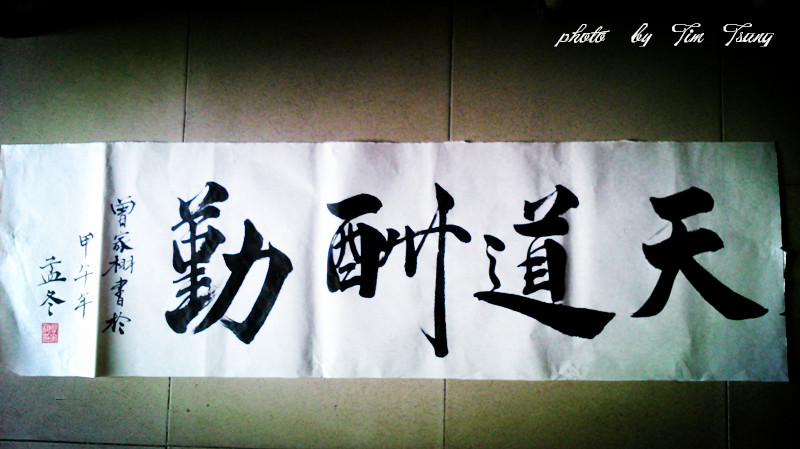 photo by Tim Tsang
天道酬勤
曾家栩書於
甲午年
孟冬